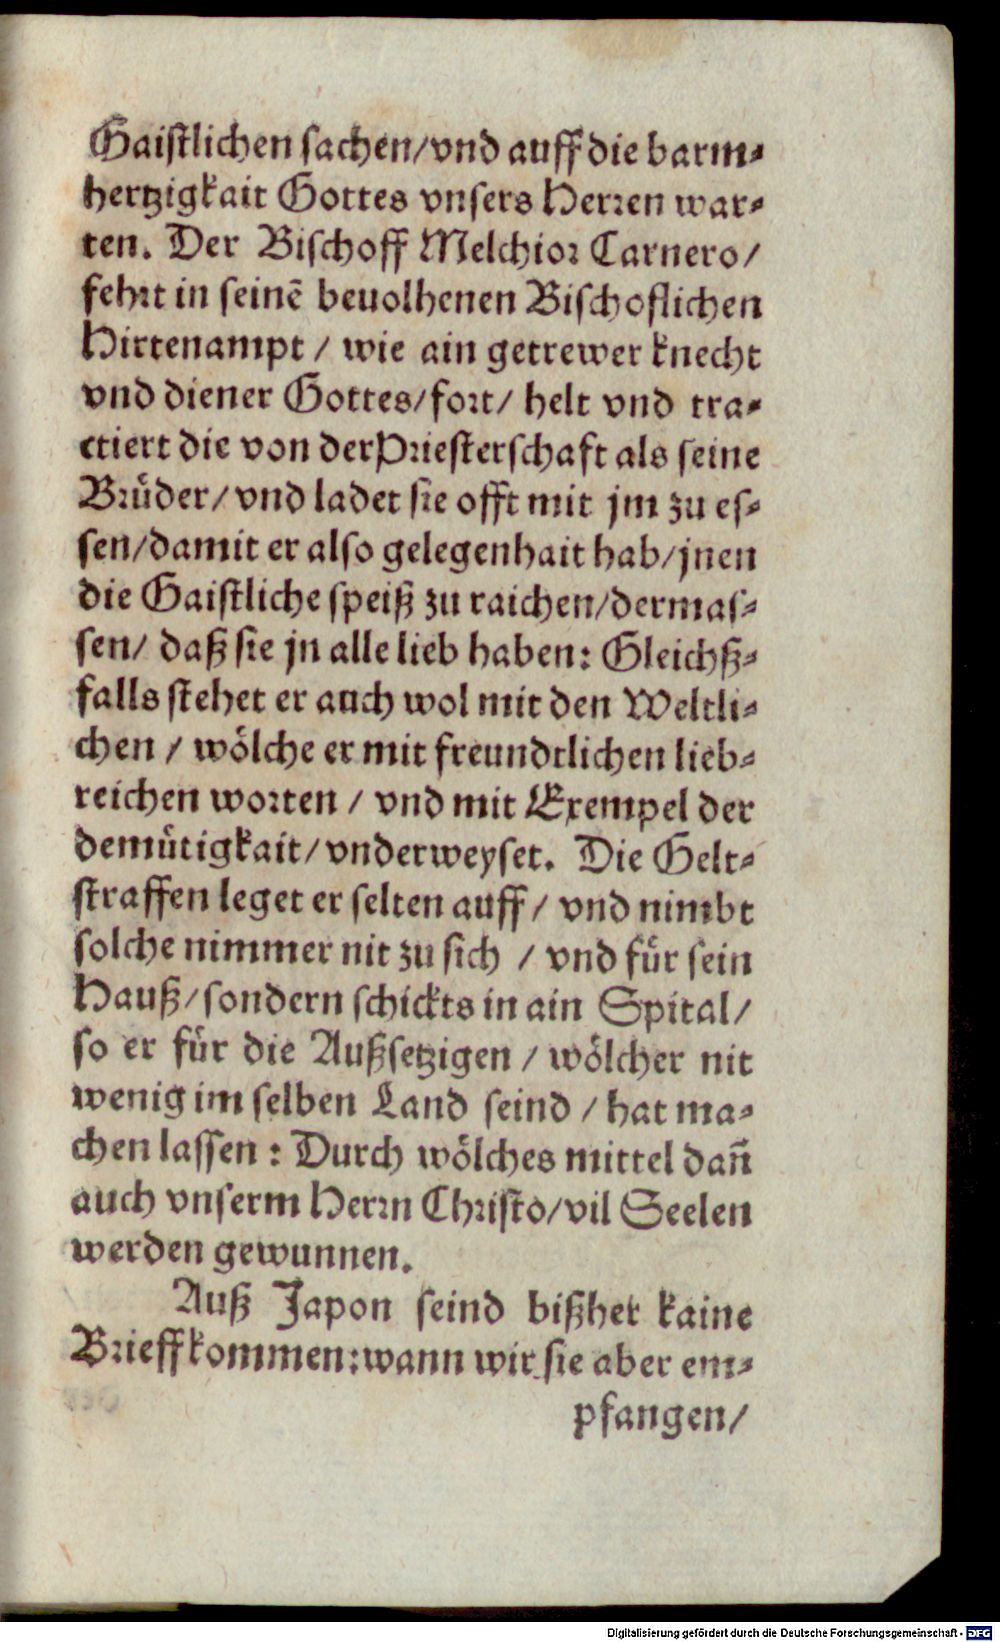 Gaistlichen sachen/vnd auff die barm⸗
hertzigkait Gottes vnsers Herren war⸗
ten. Der Bischoff Melchior Carnero/
fehrt in seinē beuolhenen Bischoflichen
Hirtenampt / wie ain getrewer knecht
vnd diener Gottes/fort/ helt vnd tra⸗
ctiert die von der Priesterschaft als seine
Brüder/vnd ladet sie offt mit jm zu es⸗
sen/damit er also gelegenhait hab/jnen
die Gaistliche speiß zu raichen/dermas⸗
sen/ daß sie jn alle lieb haben: Gleichß⸗
falls stehet er auch wol mit den Weltli⸗
chen / wölche er mit freundtlichen lieb⸗
reichen worten / vnd mit Exempel der
demütigkait/vnderweyset. Die Gelt⸗
straffen leget er selten auff / vnd nimbt
solche nimmer nit zu sich / vnd für sein
Hauß/sondern schickts in ain Spital/
so er für die Außsetzigen / wölcher nit
wenig im selben Land seind / hat ma⸗
chen lassen : Durch wölches mittel dan̄
auch vnserm Herrn Christo/vil Seelen
werden gewunnen.
Auß Japon seind bißher kaine
Brieff kommen:wann wir sie aber em⸗
pfangen/
Digitalisierung gefördert durch die Deutsche Forschungsgemeinschaft - DFG